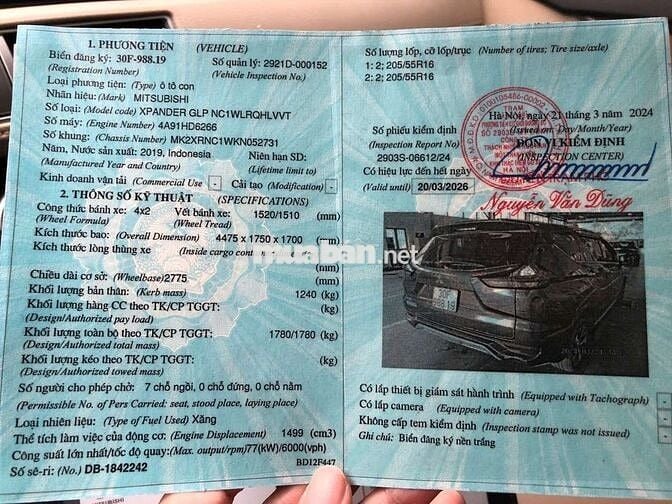 1. PHƯƠNG TIỆN (VEHICLE)
Biển đăng ký: 30F-988.19 Số quản lý: 2921D-000152
(Registration Number) (Vehicle Inspection No.)
Loại phương tiện: (Type) ô tô con
Nhãn hiệu: (Mark) MITSUBISHI
Số loại: (Model code) XPANDER GLP NC1WLRQHLVVT
Số máy: (Engine Number) 4A91HD6266
Số khung: (Chassis Number) MK2XRNC1WKN052731
Năm, Nước sản xuất: 2019, Indonesia Niên hạn SD:
(Manufactured Year and Country) (Lifetime limit to)
Kinh doanh vận tải (Commercial Use) - Cải tạo (Modification) -
2. THÔNG SỐ KỸ THUẬT (SPECIFICATIONS)
Công thức bánh xe: 4x2 Vết bánh xe: 1520/1510 (mm)
(Wheel Formula) (Wheel Tread)
Kích thước bao: (Overall Dimension) 4475 x 1750 x 1700 (mm)
Kích thước lòng thùng xe (Inside cargo cont
(mm)
Chiều dài cơ sở: (Wheelbase) 2775 (mm)
Khối lượng bản thân: (Kerb mass) 1240 (kg)
Khối lượng hàng CC theo TK/CP TGGT: (kg)
(Design/Authorized pay load)
Khối lượng toàn bộ theo TK/CP TGGT: 1780/1780 (kg)
(Design/Authorized total mass)
Khối lượng kéo theo TK/CP TGGT: (kg)
(Design/Authorized towed mass)
Số người cho phép chở: 7 chỗ ngồi, 0 chỗ đứng, 0 chỗ nằm
(Permissible No. of Pers Carried: seat, stood place, laying place)
Loại nhiên liệu: (Type of Fuel Used) Xăng
Thể tích làm việc của động cơ: (Engine Displacement) 1499 (cm3)
Công suất lớn nhất/tốc độ quay: (Max. output/rpm) 77(kW)/6000(vph)
Số sê-ri: (No.) DB-1842242 BD12F447
Số lượng lốp, cỡ lốp/trục (Number of tires; Tire size/axle)
1: 2; 205/55R16
2: 2; 205/55R16
Hà Nội, ngày 21 tháng 3 năm 2024
(Issued on: Day/Month/Year)
Số phiếu kiểm định ĐƠN VỊ KIỂM ĐỊNH
(Inspection Report No) (INSPECTION CENTER)
2903S-06612/24
Có hiệu lực đến hết ngày
(Valid until) 20/03/2026
Nguyễn Văn Dũng
muaban.net
30F
988.19
Có lắp thiết bị giám sát hành trình (Equipped with Tachograph) -
Có lắp camera (Equipped with camera) -
Không cấp tem kiểm định (Inspection stamp was not issued) -
Ghi chú: Biển đăng ký nền trắng